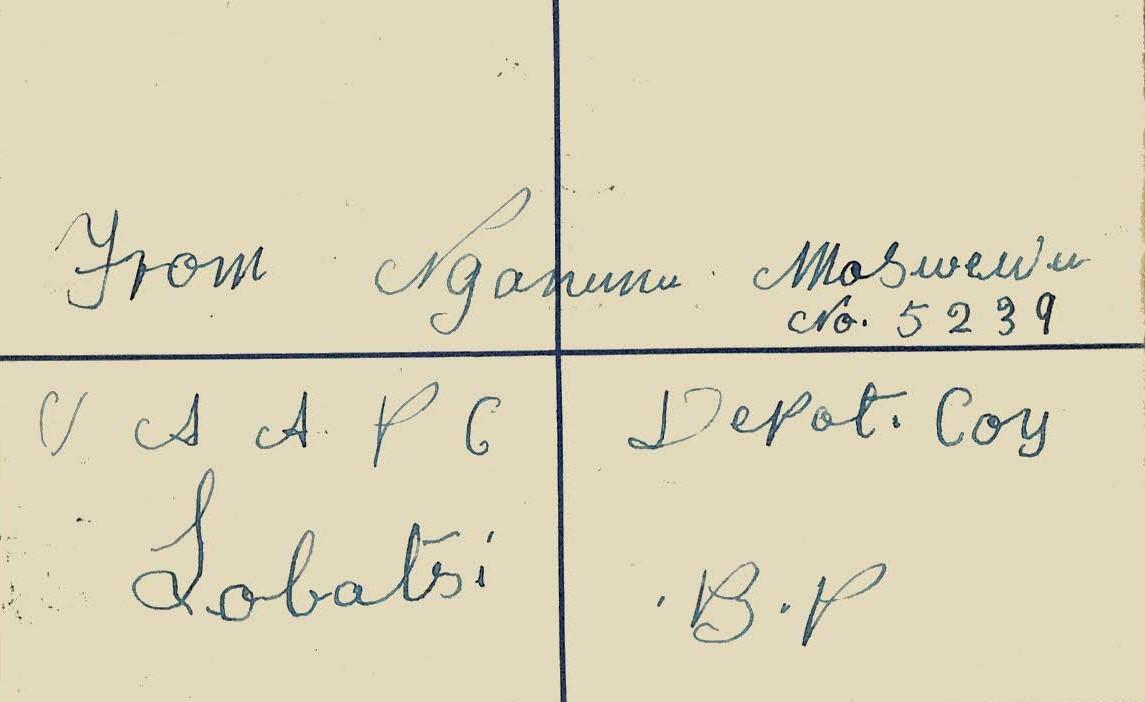 From Nganunu Masweu'u
No. 5239
A A P C Depot. Coy
Lobatsi . B. P